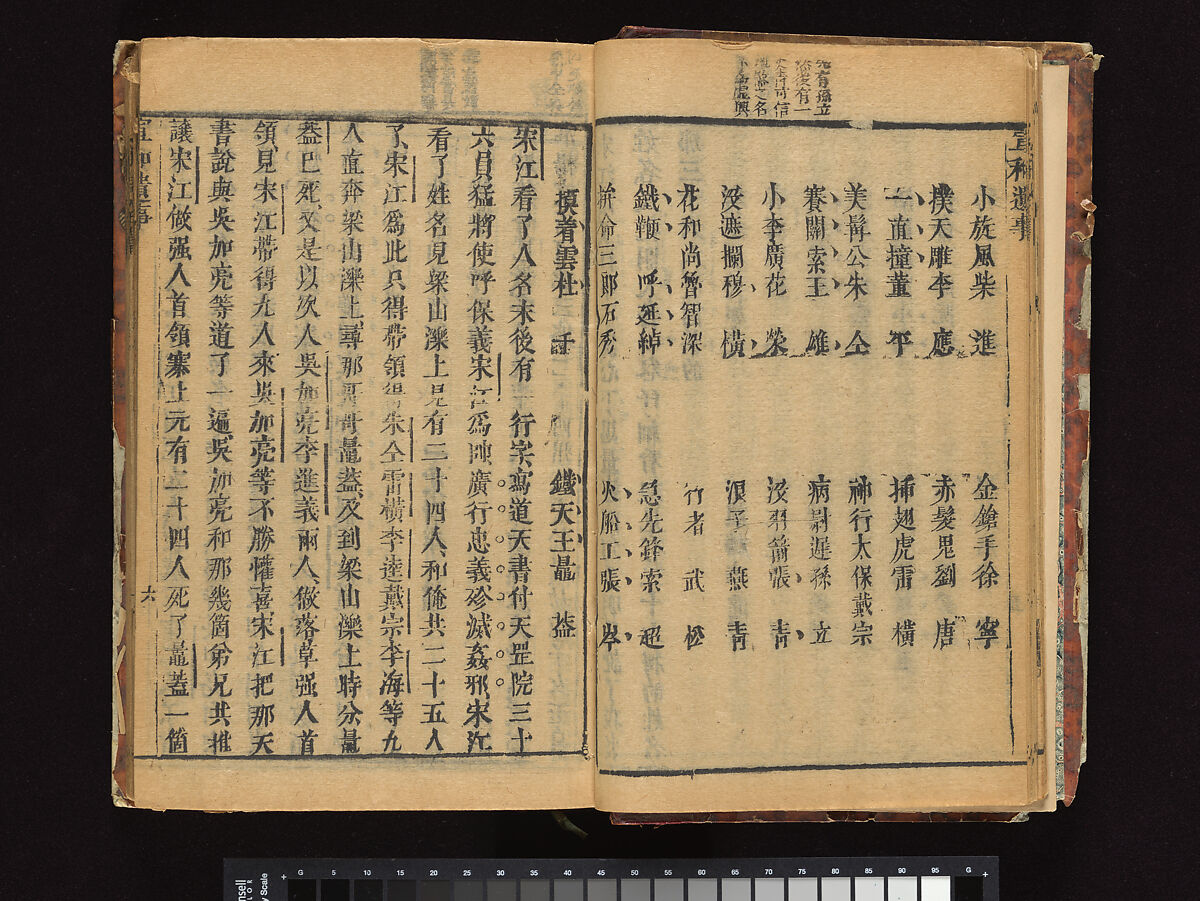 宣和遺事
小旋風柴 進 金鎗手徐 寧
撲天雕李 應 赤髮鬼劉 唐
一直撞董 平 插翅虎雷 橫
美髯公朱 仝 神行太保戴宗
賽關索王 雄 病尉遲孫 立
小李廣花 榮 沒羽箭張 青
沒遮攔穆 橫 浪子燕 青
花和尚魯智深 行者 武 松
鐵鞭 呼延綽 急先鋒索 超
拚命三郎石秀 火船工張 岑
摸着雲杜 千 鐵天王鼂 葢
宋江看了人名末後有一行字寫道天書付天罡院三十
六員猛將使呼保義宋江爲帥廣行忠義殄滅姦邪宋江
看了姓名見梁山濼上見有二十四人和俺共二十五人
了宋江爲此只得帶領得朱仝雷橫李逵戴宗李海等九
人直奔梁山濼上尋那哥哥鼂葢及到梁山濼上時分鼂
葢已死又是以次人吳加亮李進義兩人做落草强人首
領見宋江帶得九人來吳加亮等不勝懽喜宋江把那天
書說與吳加亮等道了一遍吳加亮和那幾箇弟兄共推
讓宋江做强人首領寨上元有二十四人死了鼂葢一箇
宣和遺事
六
G 5 10 15 20 25 30 35 40 45 50 55 60 65 70 75 80 85 90 95 G